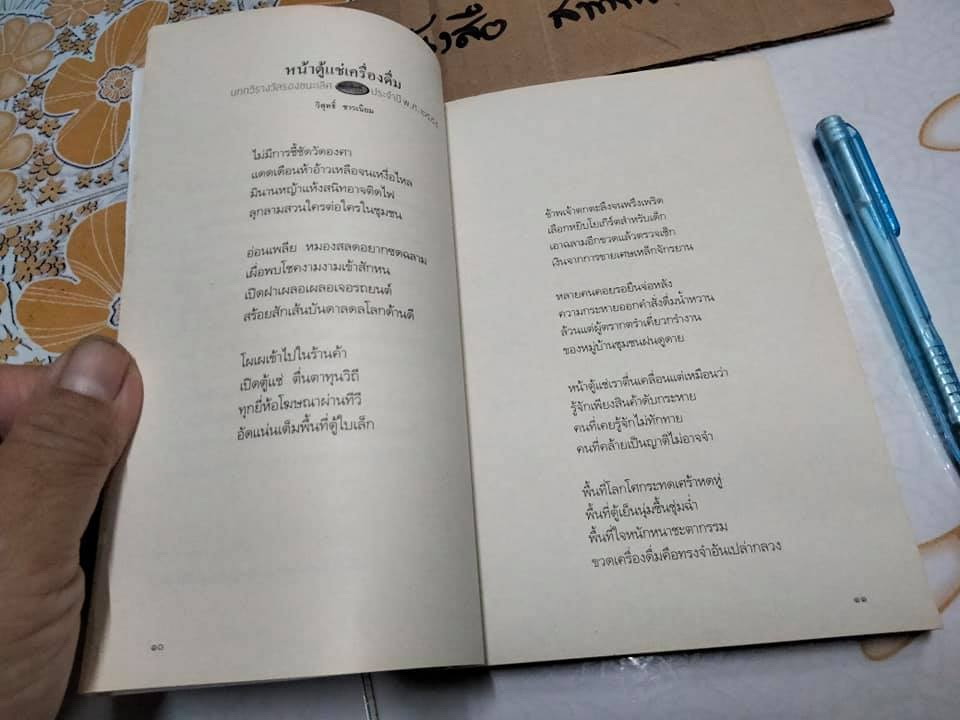 หนังสือ
หน้าตู้แช่เครื่องดื่ม
บทกวีรางวัลรองชนะเลิศ ประจำปี พ.ศ.
วิสุทธิ์ ขาวเนียม
ไม่มีการชี้ชัดวัดองศา
แดดเดือนห้าอ้าวเหลือจนเหงื่อไหล
มินานหญ้าแห้งสนิทอาจติดไฟ
ลุกลามสวนใครต่อใครในชุมชน
อ่อนเพลีย หมองสลดอยากซดฉลาม
เผื่อพบโชคงามงามเข้าสักหน
เปิดฝาเผลอเผลอเจอรถยนต์
สร้อยสักเส้นบันดาลดลโลกด้านดี
โผเผเข้าไปในร้านค้า
เปิดตู้แช่ ตื่นตาทุนวิถี
ทุกยี่ห้อโฆษณาผ่านทีวี
อัดแน่นเต็มพื้นที่ตู้ใบเล็ก
๑๐
ข้าพเจ้าตกตะลึงจนพรึงเพริด
เลือกหยิบโยเกิร์ตสำหรับเด็ก
เอาฉลามอีกขวดแล้วตรวจเช็ก
เงินจากการขายเศษเหล็กจักรยาน
หลายคนคอยรอยืนจ่อหลัง
ความกระหายออกคำสั่งดื่มน้ำหวาน
ล้วนแต่ผู้ตรากตรำเคี่ยวกรำงาน
ของหมู่บ้านชุมชนฝนดูดาย
หน้าตู้แช่เราตื่นเคลื่อนแต่เหมือนว่า
รู้จักเพียงสินค้าดับกระหาย
คนที่เคยรู้จักไม่ทักทาย
คนที่คล้ายเป็นญาติไม่อาจจำ
พื้นที่โลกโศกระทดเศร้าหดหู่
พื้นที่ตู้เย็นนุ่มชื้นชุ่มฉ่ำ
พื้นที่ใจหนักหนาชะตากรรม
ขวดเครื่องดื่มคือทรงจำอันเปล่ากลวง
๑๑